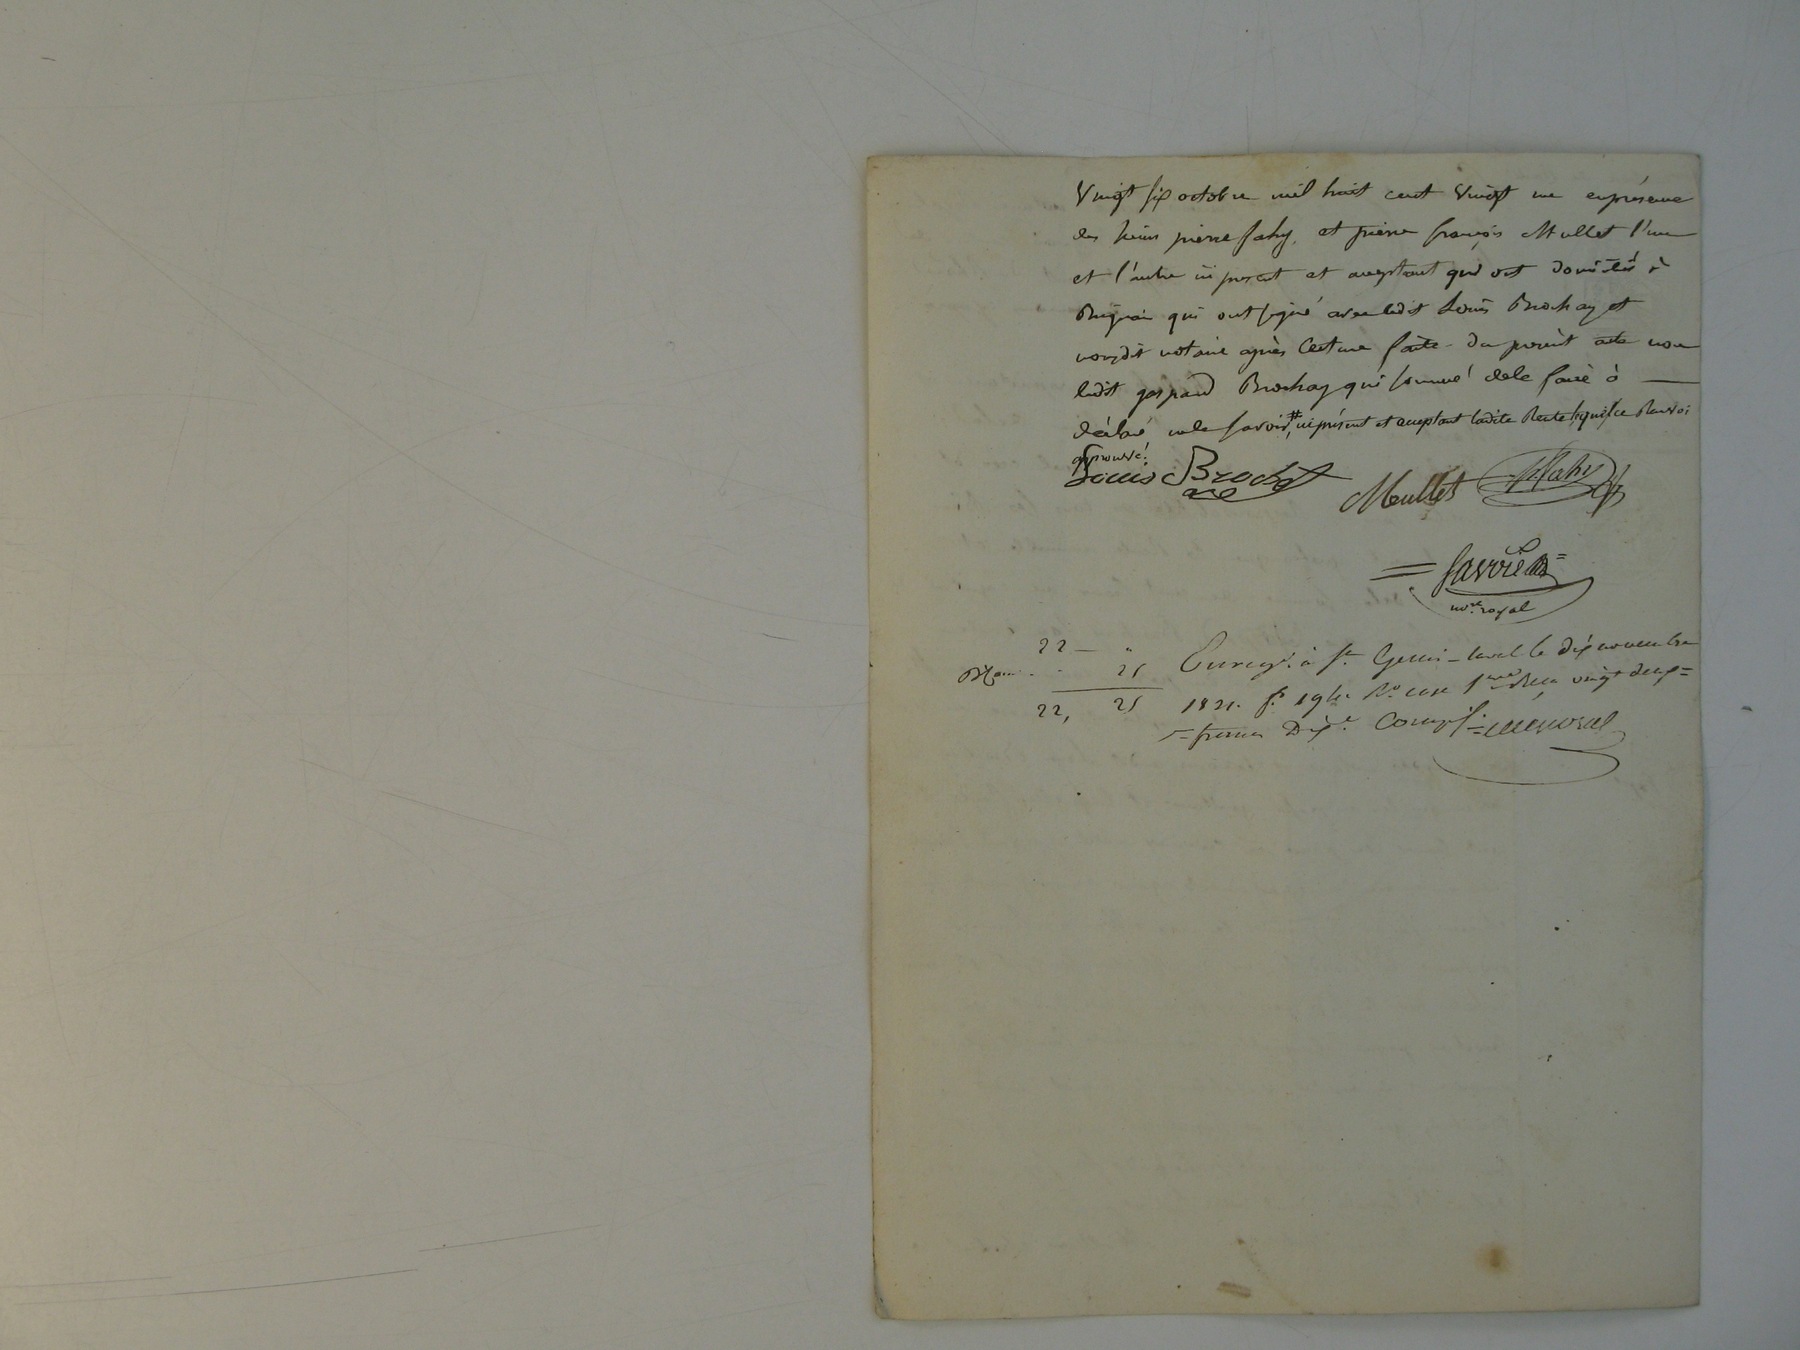 Vingt six octobre mil huit cent vingt un en présence
des sieurs pierre fahy, et pierre françois Mullet l'un
et l'autre ici present et acceptant qui ont domicilié à
Brignais qui ont signé avec ledit Louis Brochay et
nousdit notaire après lecture faite du present acte non
ledit gaspard Brochay qui sommé de le faire à
déclaré ne le savoir # ci présent et acceptant ladite Rente, ce Renvoi
approuvé.
Louis Brochet
Meullet fahy
= favrie =
not.re royal
22 —
25
22, 25
Enregt. à St. Genis-Laval le dix novembre
1821. fo. 194 Ro. case 1ere Reçu vingt deux =
= francs Dixe. Compse.